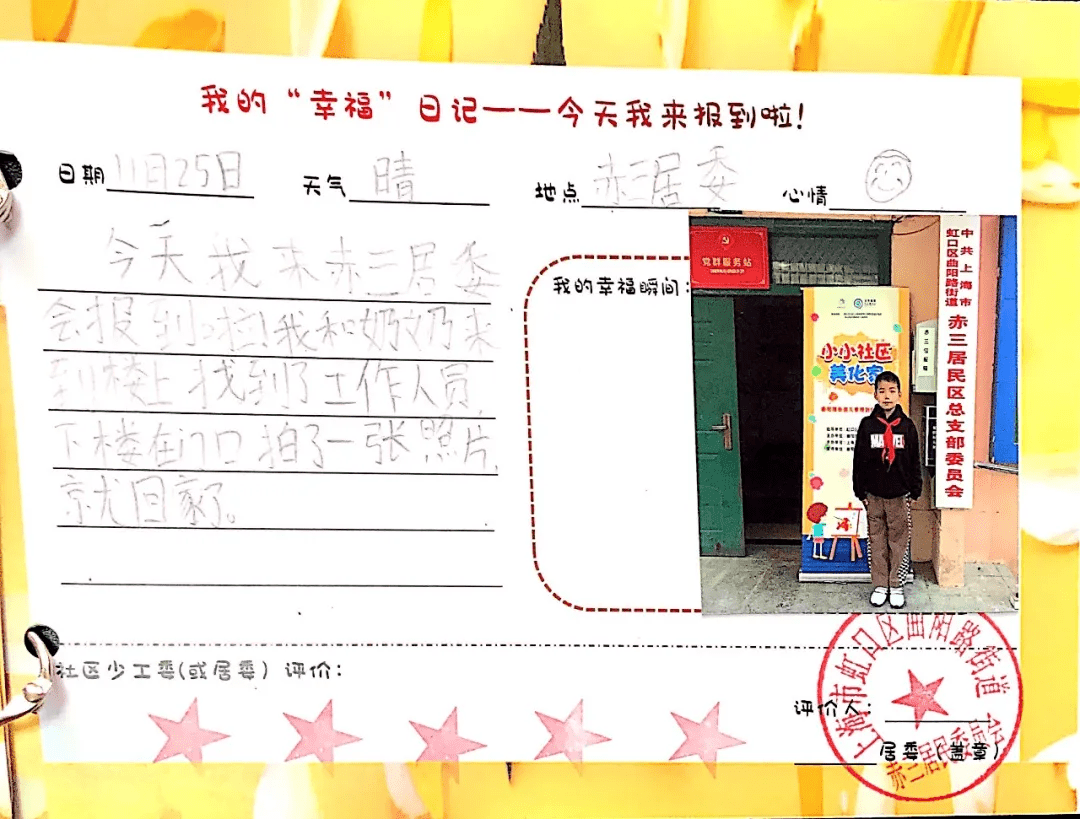 我的“幸福”日记——今天我来报到啦！
日期 11月25日 天气 晴 地点 赤三居委 心情
今天我来赤三居委
会报到啦！我和奶奶来
到楼上找到了工作人员，
下楼在门口拍了一张照片，
就回家了。
我的幸福瞬间：
党群服务站
小小社区
美化家
中共上海市
虹口区曲阳路街道
赤三居民区总支部委员会
社区少工委(或居委）评价：
评价人：
居委（盖章）
上海市虹口区曲阳路街道
赤三居民委员会